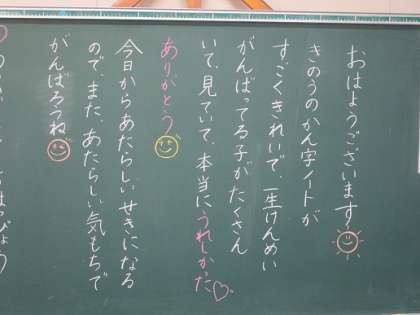 おはようございます
きのうのかん字ノートが
すごくきれいで、一生けんめい
がんばってる子がたくさん
いて、見ていて、本当にうれしかった
ありがとう
今日からあたらしいせきになる
ので、また、あたらしい気もちで
がんばろうね